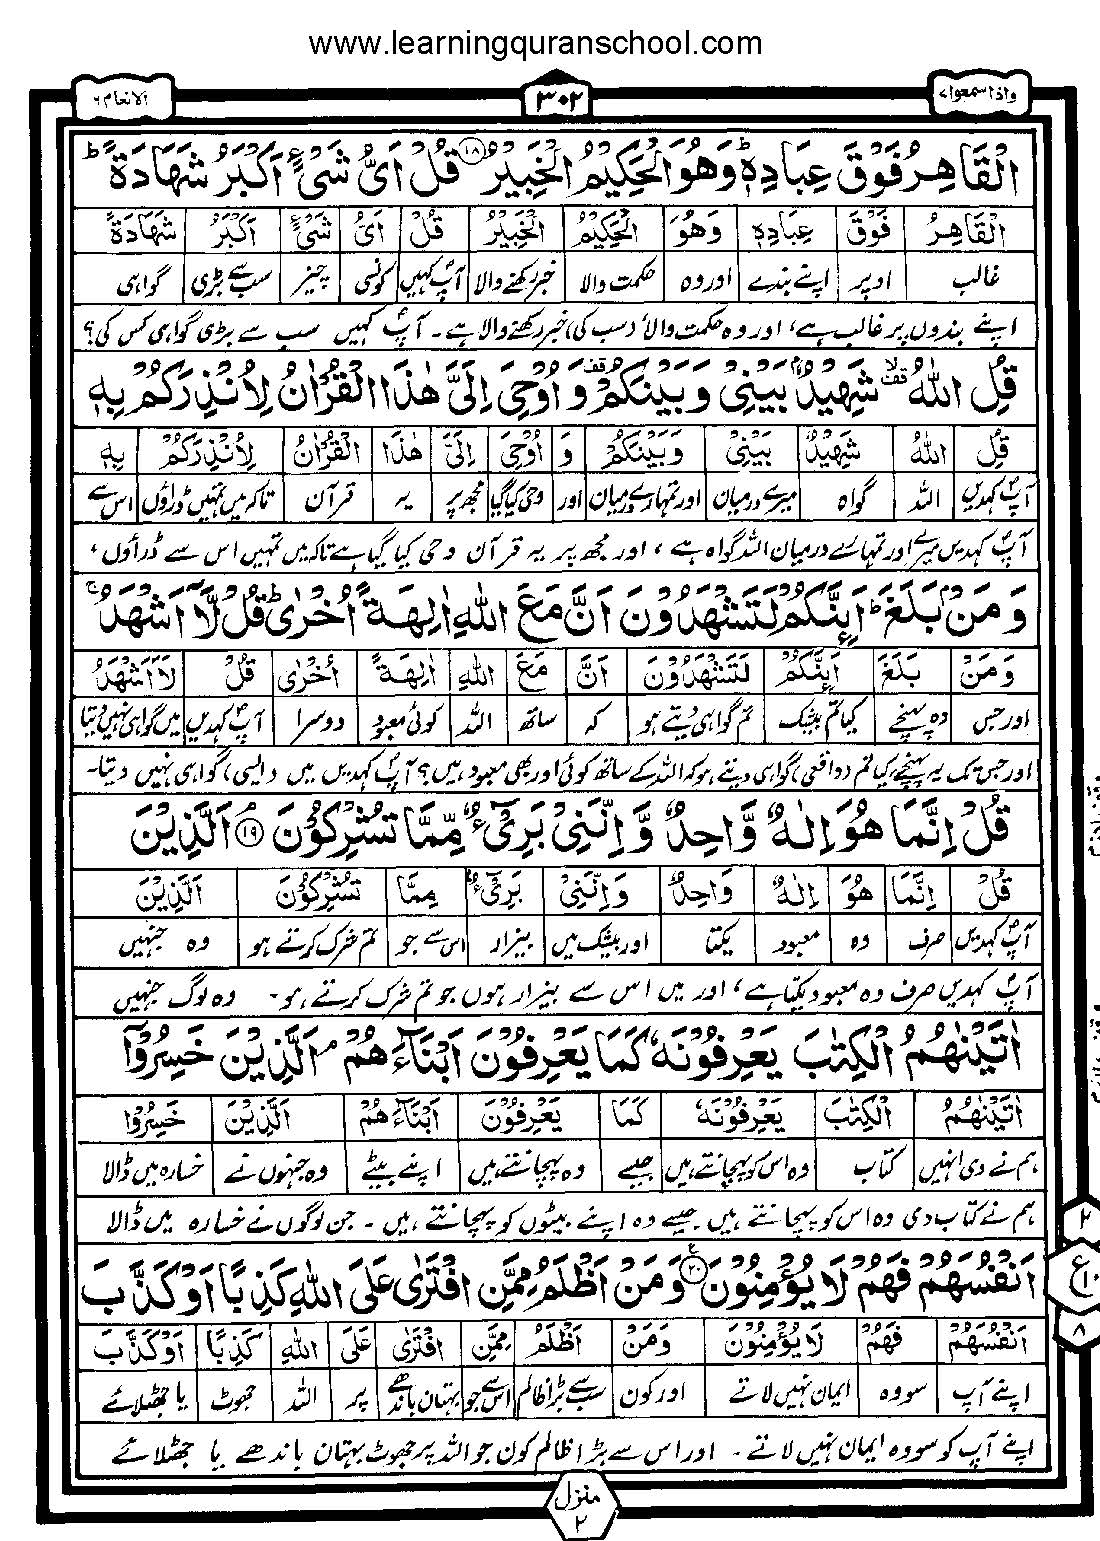 www.learningquranschool.com
واذا سمعوا ۷
۳۰۲
الانعام ۶
الْقَاهِرُ فَوْقَ عِبَادِهٖ ؕ وَهُوَ الْحَكِيْمُ الْخَبِيْرُ ﴿۱۸﴾ قُلْ اَيُّ شَيْءٍ اَكْبَرُ شَهَادَةً ؕ
الْقَاهِرُ فَوْقَ عِبَادِهٖ وَهُوَ الْحَكِيْمُ الْخَبِيْرُ قُلْ اَيُّ شَيْءٍ اَكْبَرُ شَهَادَةً
غالب اوپر اپنے بندے اور وہ حکمت والا خبر رکھنے والا آپ کہیں کونسی چیز سب سے بڑی گواہی
اپنے بندوں پر غالب ہے، اور وہ حکمت والا (سب کی) خبر رکھنے والا ہے۔ آپ کہیں سب سے بڑی گواہی کس کی؟
قُلِ اللّٰهُ شَهِيْدٌۢ بَيْنِيْ وَبَيْنَكُمْ وَاُوْحِيَ اِلَيَّ هٰذَا الْقُرْاٰنُ لِاُنْذِرَكُمْ بِهٖ
قُلِ اللّٰهُ شَهِيْدٌ بَيْنِيْ وَبَيْنَكُمْ وَ اُوْحِيَ اِلَيَّ هٰذَا الْقُرْاٰنُ لِاُنْذِرَكُمْ بِهٖ
آپ کہدیں اللہ گواہ میرے درمیان اور تمہارے درمیان اور وحی کیا گیا مجھ پر یہ قرآن تاکہ میں تمہیں ڈراؤں اس سے
آپ کہدیں میرے اور تمہارے درمیان اللہ گواہ ہے، اور مجھ پر یہ قرآن وحی کیا گیا ہے تاکہ میں تمہیں اس سے ڈراؤں،
وَمَنْۢ بَلَغَ ؕ اَئِنَّكُمْ لَتَشْهَدُوْنَ اَنَّ مَعَ اللّٰهِ اٰلِهَةً اُخْرٰى ؕ قُلْ لَّاۤ اَشْهَدُ ۚ
وَمَنْ بَلَغَ اَئِنَّكُمْ لَتَشْهَدُوْنَ اَنَّ مَعَ اللّٰهِ اٰلِهَةً اُخْرٰى قُلْ لَا اَشْهَدُ
اور جس وہ پہنچے کیا تم بیشک تم گواہی دیتے ہو کہ ساتھ اللہ کوئی معبود دوسرا آپ کہدیں میں گواہی نہیں دیتا
اور جس تک یہ پہنچے، کیا تم (واقعی) گواہی دیتے ہو کہ اللہ کے ساتھ کوئی اور بھی معبود ہیں؟ آپ کہدیں میں (ایسی) گواہی نہیں دیتا۔
قُلْ اِنَّمَا هُوَ اِلٰهٌ وَّاحِدٌ وَّاِنَّنِيْ بَرِيْٓءٌ مِّمَّا تُشْرِكُوْنَ ﴿۱۹﴾ اَلَّذِيْنَ
قُلْ اِنَّمَا هُوَ اِلٰهٌ وَاحِدٌ وَاِنَّنِيْ بَرِيْٓءٌ مِمَّا تُشْرِكُوْنَ اَلَّذِيْنَ
آپ کہدیں صرف وہ معبود یکتا اور بیشک میں بیزار اس سے جو تم شرک کرتے ہو وہ جنہیں
آپ کہدیں صرف وہ معبود یکتا ہے، اور میں اس سے بیزار ہوں جو تم شرک کرتے ہو۔ وہ لوگ جنہیں
اٰتَيْنٰهُمُ الْكِتٰبَ يَعْرِفُوْنَهٗ كَمَا يَعْرِفُوْنَ اَبْنَآءَهُمْ ۘ اَلَّذِيْنَ خَسِرُوْۤا
اٰتَيْنٰهُمُ الْكِتٰبَ يَعْرِفُوْنَهٗ كَمَا يَعْرِفُوْنَ اَبْنَآءَهُمْ اَلَّذِيْنَ خَسِرُوْا
ہم نے دی انہیں کتاب وہ اس کو پہچانتے ہیں جیسے وہ پہچانتے ہیں اپنے بیٹے وہ جنہوں نے خسارہ میں ڈالا
ہم نے کتاب دی وہ اس کو پہچانتے ہیں جیسے وہ اپنے بیٹوں کو پہچانتے ہیں۔ جن لوگوں نے خسارہ میں ڈالا
اَنْفُسَهُمْ فَهُمْ لَا يُؤْمِنُوْنَ ﴿۲۰﴾ وَمَنْ اَظْلَمُ مِمَّنِ افْتَرٰى عَلَى اللّٰهِ كَذِبًا اَوْ كَذَّبَ
اَنْفُسَهُمْ فَهُمْ لَا يُؤْمِنُوْنَ وَمَنْ اَظْلَمُ مِمَّنِ افْتَرٰى عَلَى اللّٰهِ كَذِبًا اَوْ كَذَّبَ
اپنے آپ سو وہ ایمان نہیں لاتے اور کون سب سے بڑا ظالم اس سے جو بہتان باندھے پر اللہ جھوٹ یا جھٹلائے
اپنے آپ کو سو وہ ایمان نہیں لاتے۔ اور اس سے بڑا ظالم کون جو اللہ پر جھوٹ بہتان باندھے یا جھٹلائے
۲
ع ۱۰
۸
منزل
۲